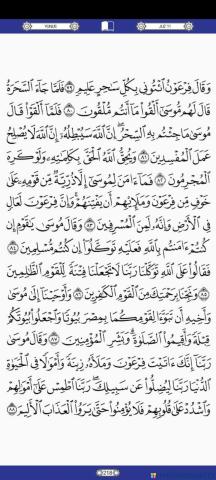 YUNUS
JUZ 11
وَقَالَ فِرْعَوْنُ ٱئْتُونِى بِكُلِّ سَـٰحِرٍ عَلِيمٍ ٧٩ فَلَمَّا جَآءَ ٱلسَّحَرَةُ
قَالَ لَهُم مُّوسَىٰٓ أَلْقُوا۟ مَآ أَنتُم مُّلْقُونَ ٨٠ فَلَمَّآ أَلْقَوْا۟ قَالَ
مُوسَىٰ مَا جِئْتُم بِهِ ٱلسِّحْرُ ۖ إِنَّ ٱللَّهَ سَيُبْطِلُهُۥٓ ۖ إِنَّ ٱللَّهَ لَا يُصْلِحُ
عَمَلَ ٱلْمُفْسِدِينَ ٨١ وَيُحِقُّ ٱللَّهُ ٱلْحَقَّ بِكَلِمَـٰتِهِۦ وَلَوْ كَرِهَ
ٱلْمُجْرِمُونَ ٨٢ فَمَآ ءَامَنَ لِمُوسَىٰٓ إِلَّا ذُرِّيَّةٌ مِّن قَوْمِهِۦ عَلَىٰ
خَوْفٍ مِّن فِرْعَوْنَ وَمَلَإِي۟هِمْ أَن يَفْتِنَهُمْ ۚ وَإِنَّ فِرْعَوْنَ لَعَالٍ
فِى ٱلْأَرْضِ وَإِنَّهُۥ لَمِنَ ٱلْمُسْرِفِينَ ٨٣ وَقَالَ مُوسَىٰ يَـٰقَوْمِ إِن
كُنتُمْ ءَامَنتُم بِٱللَّهِ فَعَلَيْهِ تَوَكَّلُوٓا۟ إِن كُنتُم مُّسْلِمِينَ ٨٤
فَقَالُوا۟ عَلَى ٱللَّهِ تَوَكَّلْنَا رَبَّنَا لَا تَجْعَلْنَا فِتْنَةً لِّلْقَوْمِ ٱلظَّـٰلِمِينَ
٨٥ وَنَجِّنَا بِرَحْمَتِكَ مِنَ ٱلْقَوْمِ ٱلْكَـٰفِرِينَ ٨٦ وَأَوْحَيْنَآ إِلَىٰ مُوسَىٰ
وَأَخِيهِ أَن تَبَوَّءَا لِقَوْمِكُمَا بِمِصْرَ بُيُوتًا وَٱجْعَلُوا۟ بُيُوتَكُمْ
قِبْلَةً وَأَقِيمُوا۟ ٱلصَّلَوٰةَ ۗ وَبَشِّرِ ٱلْمُؤْمِنِينَ ٨٧ وَقَالَ مُوسَىٰ
رَبَّنَآ إِنَّكَ ءَاتَيْتَ فِرْعَوْنَ وَمَلَأَهُۥ زِينَةً وَأَمْوَٰلًا فِى ٱلْحَيَوٰةِ
ٱلدُّنْيَا رَبَّنَا لِيُضِلُّوا۟ عَن سَبِيلِكَ ۖ رَبَّنَا ٱطْمِسْ عَلَىٰٓ أَمْوَٰلِهِمْ
وَٱشْدُدْ عَلَىٰ قُلُوبِهِمْ فَلَا يُؤْمِنُوا۟ حَتَّىٰ يَرَوُا۟ ٱلْعَذَابَ ٱلْأَلِيمَ ٨٨